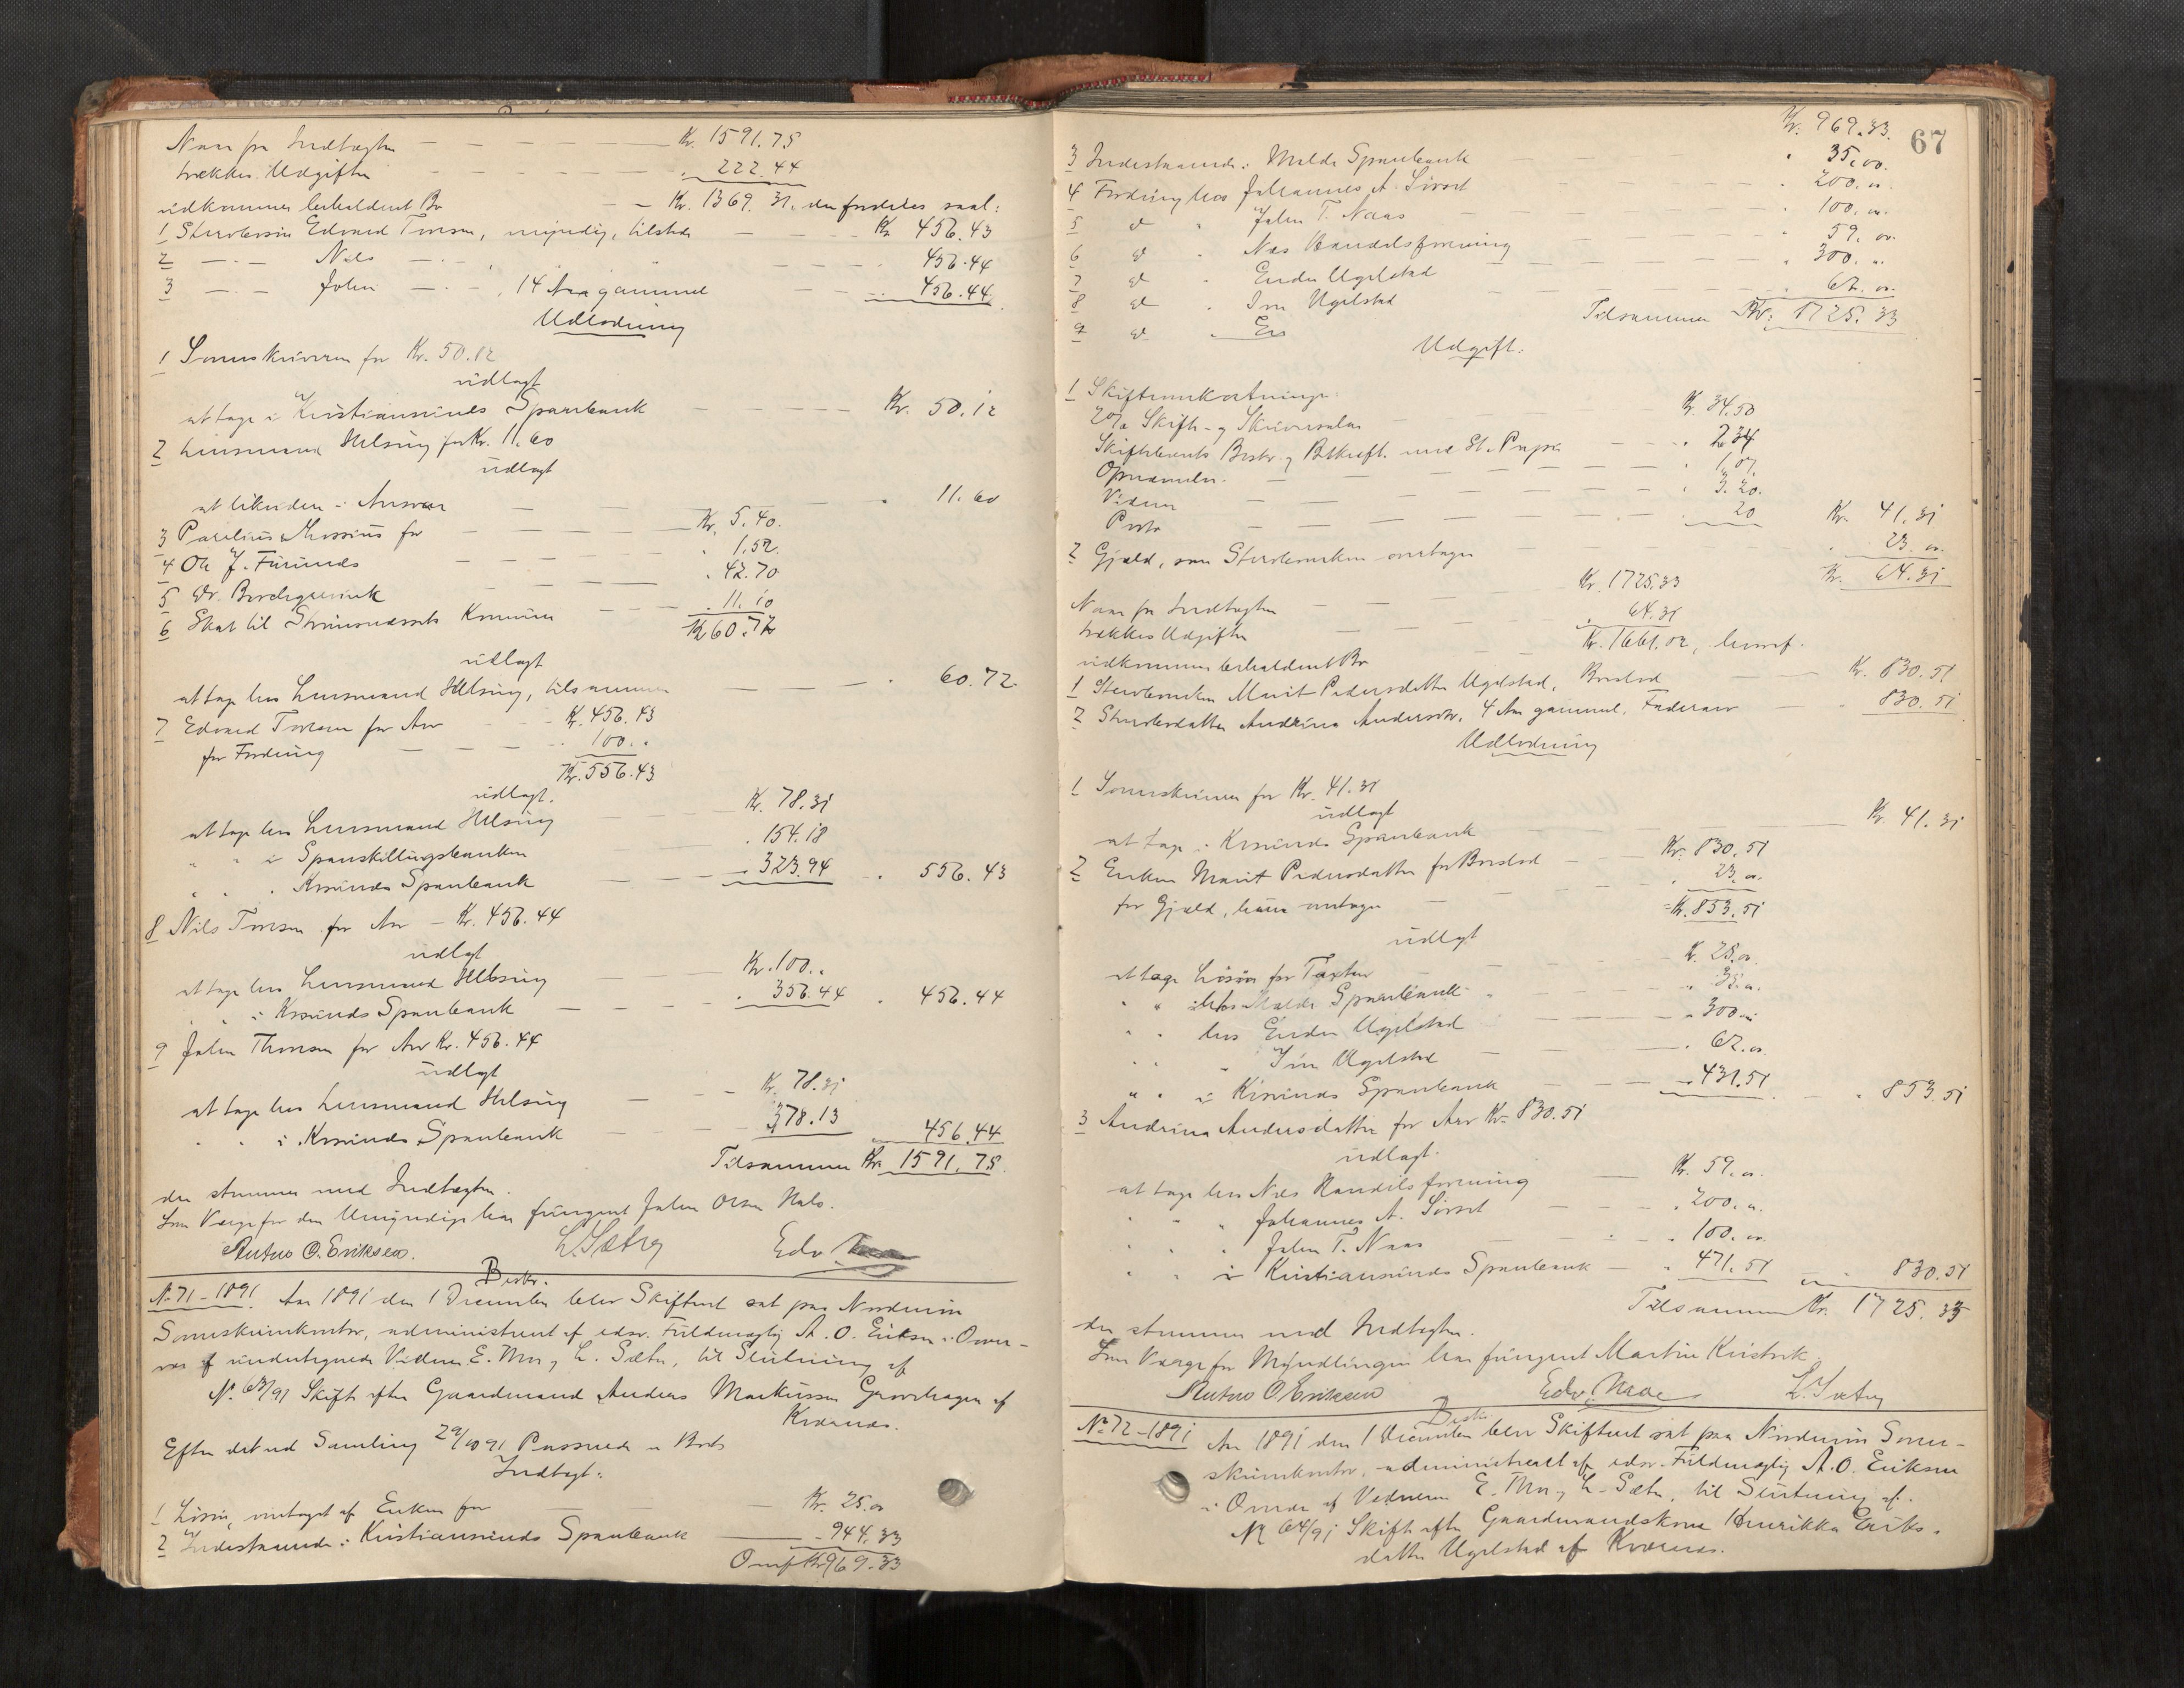 Naar fra Indtægten Kr. 1591.75
trækkes Udgiften 222.44
udkommer beholdent Bo Kr. 1369.31. der fordeles saal:
1 Stervbosøn Edvard Toresen, myndig, tilstede Kr. 456.43
2 —.— Nils —.— 456.44
3 —.— John —.— 14 Aar gammel 456.44
Udlodning
1 Sorenskriveren for Kr. 50.12
udlagt
at tage i Kristianssunds Sparebank Kr. 50.12
2 Lensmand Helsing for Kr. 11.60
udlagt
at likvidere i Ansvar 11.60
3 Parelius & Mossius for Kr. 5.40.
4 Ole J. Furunds 1.52.
5 Dr. Borchgrevink 42.70
6 Skat til Strømsnæssets Kommune 11.10
Kr. 60.72
udlagt
at tage hos Lensmand Helsing, tilsammen 60.72
7 Edvard Toresen for Arv Kr. 456.43
for Fordring 100..
Kr. 556.43
udlagt.
at tage hos Lensmand Helsing Kr. 78.31
" " i Spareskillingsbanken 154.18
" " Krsunds Sparebank 323.94 556.43
8 Nils Toresen for Arv Kr. 456.44
udlagt
at tage hos Lensmand Helsing Kr. 100..
" " i Krsunds Sparebank 356.44 456.44
9 John Thoresen for Arv Kr. 456.44
udlagt
at tage hos Lensmand Helsing Kr. 78.31
" " i Krsunds Sparebank 378.13 456.44
Tilsammen Kr. 1591.75
der stemmer med Indtægten.
Som Værge for den Umyndige har fungeret John Olsen Hals.
Antus O. Eriksen. L. Sæther Edv.
Beskr.
No 71-1891. Aar 1891 den 1 December blev Skifteret sat paa Nordmør
Sorenskriverkontor, administreret af edsv. Fuldmægtig A. O. Eriksen i Overvær
af undertegnede Vidner E. Moe og L. Sæter, til Slutning af
No 63/91 Skifte efter Gaardmand Anders Markussen Gravehagen af
Kvernes.
Efter det ved Samling 29/10 91 Passerede er Boets
Indtægt:
1 Løsøre, overtaget af Enken for Kr. 25.00
2 Indestaaende i Kristianssunds Sparebank 944.33
Overf. Kr. 969.33
67
Kr. 969.33.
3 Indestaaende i Molde Sparebank 35.00.
4 Fordring hos Johannes A. Sirset 200. "
5 do " John T. Naas 100. "
6 do " Næs Handelsforening 59. "
7 do " Ender Ugelstad 300. "
8 do " Iver Ugelstad 62. "
9 do " En
Tilsammen Kr. 1725.33
Udgift:
1 Skifteomkostninger:
2% Skifte- og Skriversalær Kr. 34.50
Skiftebrevets Beskr. og Bekræft. med St. Papir 2.34
Opnævnelse 1.07.
Vidner 3.20.
Porto 20 Kr. 41.31
2 Gjæld, som Sterboenken overtager 23. "
Kr. 64.31
Naar fra Indtægten Kr. 1725.33
trækkes Udgiften 64.31
udkommer beholdent Bo Kr. 1661.02, hvoraf
1 Sterboenken Marit Pedersdatter Ugelstad, Boeslod Kr. 830.51
2 Sterbodatter Andrina Andersdtr, 4 Aar gammel, Faderarv 830.51
Udlodning
1 Sorenskriveren for Kr. 41.31
udlagt
at tage i Krsunds Sparebank Kr. 41.31
2 Enken Marit Pedersdatter for Boeslod Kr. 830.51
for Gjæld, hun overtager 23. "
Kr. 853.51
udlagt
at tage Løsøre for Taxten Kr. 25. "
" " i Molde Sparebank 35. "
" " hos Ender Ugelstad 300 "
" " " Iver Ugelstad 62. "
" " i Krsunds Sparebank 431.51 853.51
3 Andrina Andersdatter for Arv Kr. 830.51
udlagt.
at tage hos Næs Handelsforening Kr. 59. "
" " " Johannes A. Sirset 200. "
" " " John T. Naas 100. "
" " i Kristianssunds Sparebank 471.51 830.51
Tilsammen Kr. 1725.33
der stemmer med Indtægten.
Som Værge for Myndlingen har fungeret Martin Kristvik.
Antus O Eriksen Edv. Moe L. Sæter
Beskr.
No 72-1891 Aar 1891 den 1 December blev Skifteret sat paa Nordmør Soren-
skriverkontor, administreret af edsv. Fuldmægtig A. O. Eriksen
i Overvær af Vidnerne E. Moe og L. Sæter, til Slutning af
No 64/91 Skifte efter Gaardmandskone Henrikka Eriks-
datter Ugelstad af Kvernes.